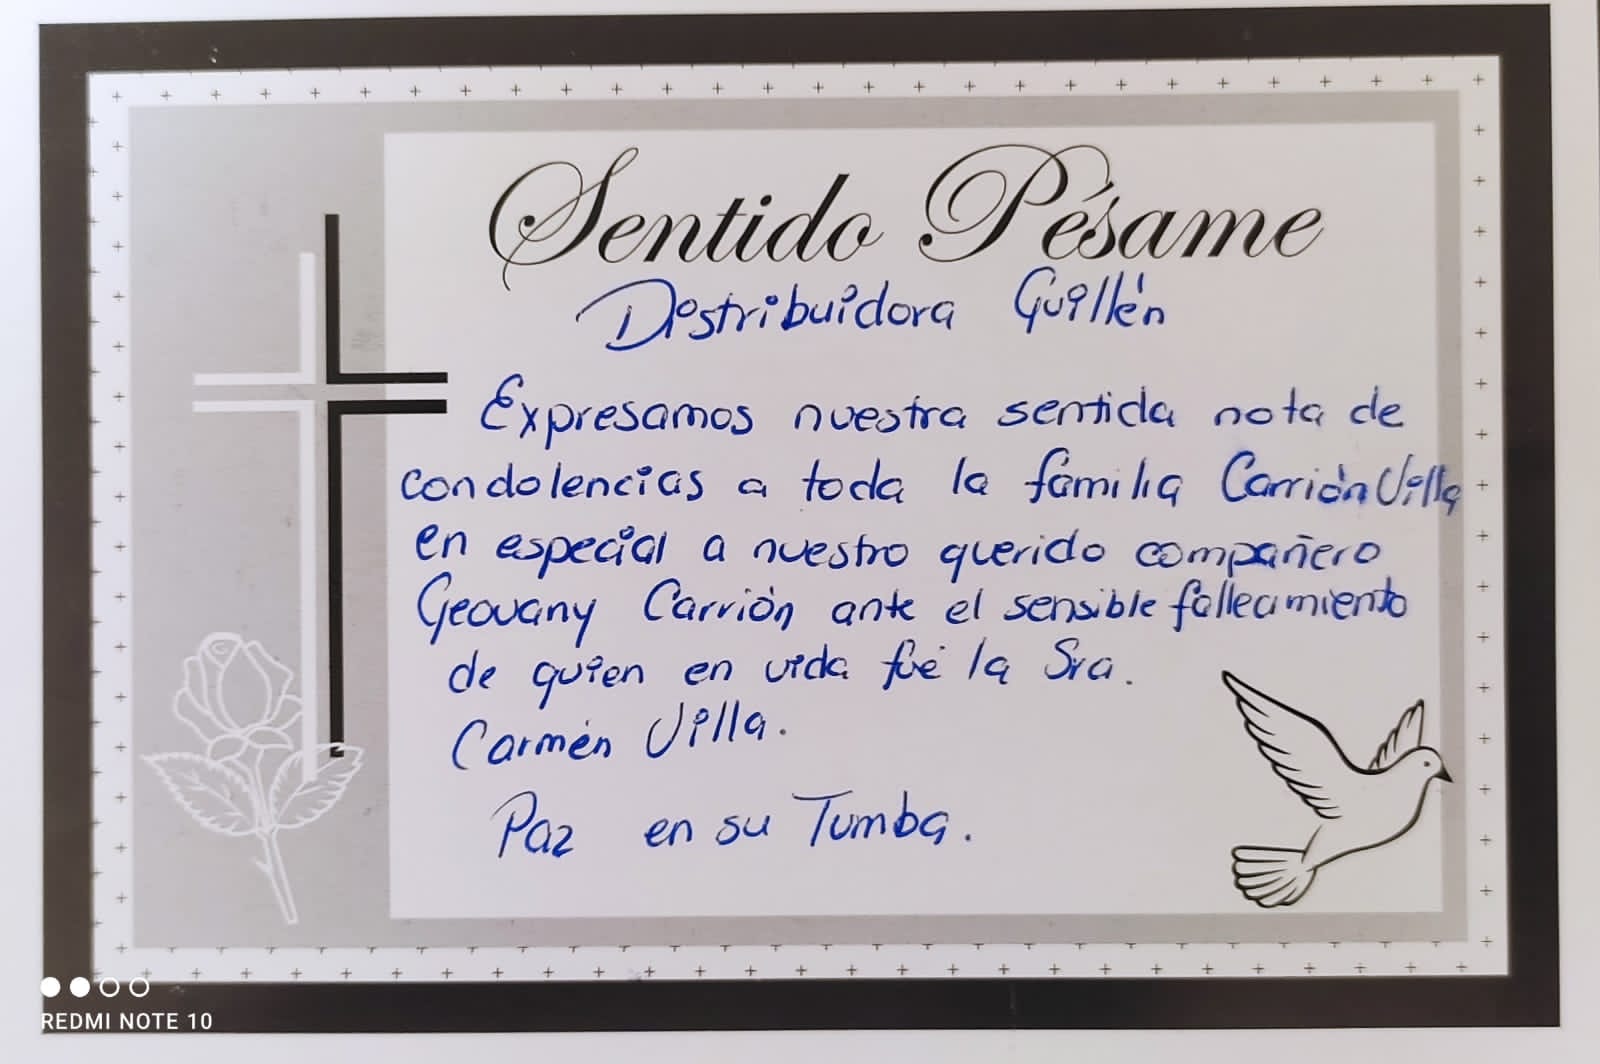 Sentido Pésame
Distribuidora Guillén
Expresamos nuestra sentida nota de
condolencias a toda la familia Carrión Villa
en especial a nuestro querido compañero
Geovany Carrión ante el sensible falleamiento
de quien en vida fué la Sra.
Carmén Villa.
Paz en su Tumba.
REDMI NOTE 10